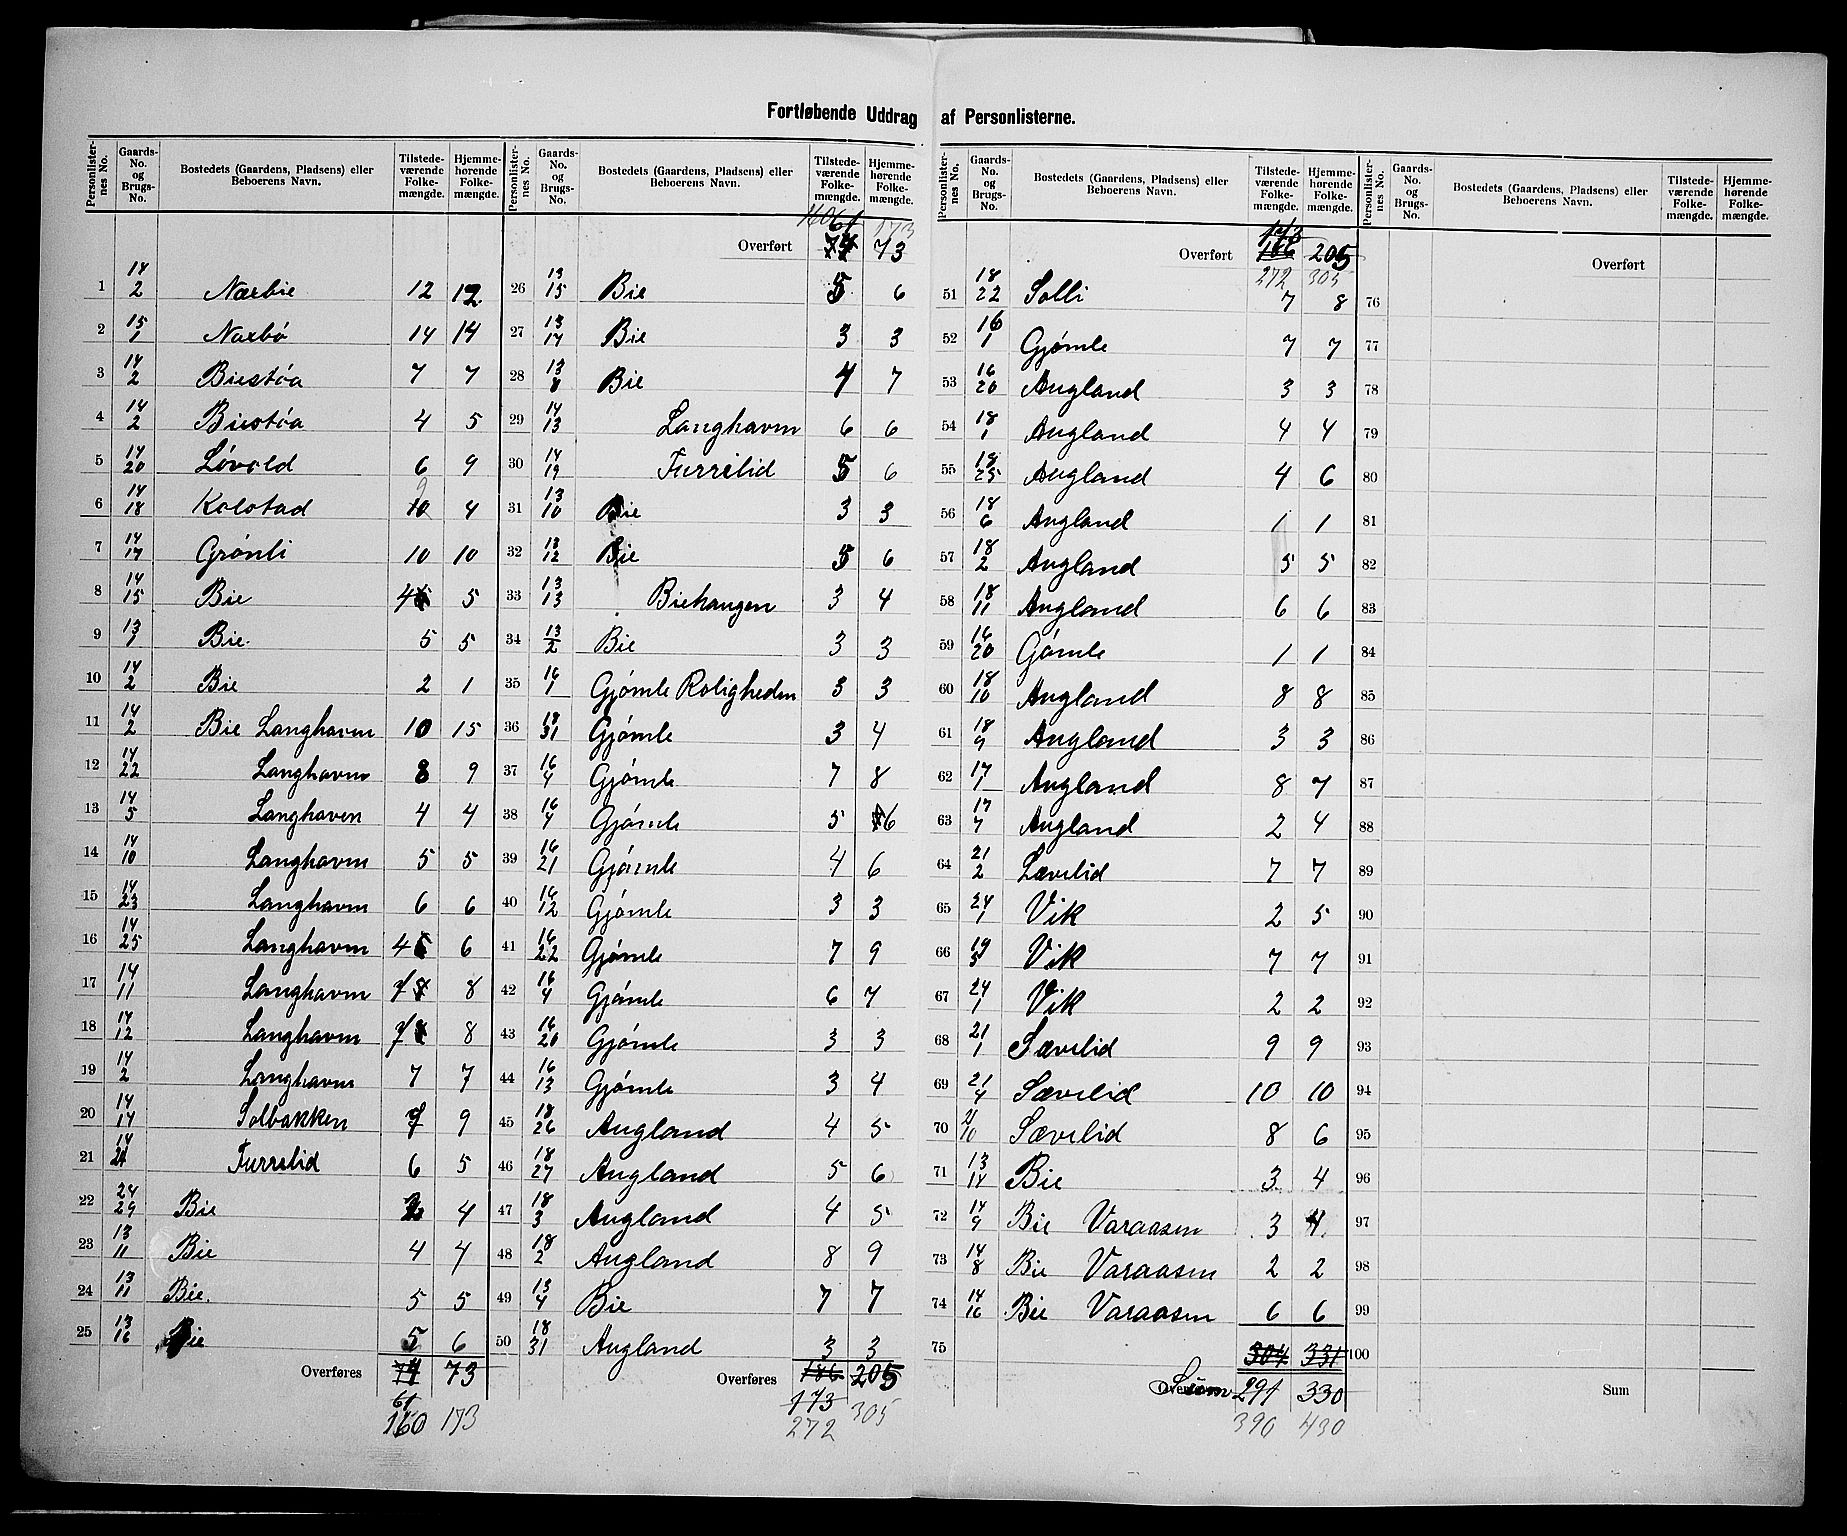 Fortløbende Uddrag af Personlisterne.
Personlister-nes No. Gaards-No. og Brugs-No. Bostedets (Gaardens, Pladsens) eller Beboerens Navn. Tilstede-værende Folke-mængde. Hjemme-hørende Folke-mængde.
1 14/2 Nærbie 12 12
2 15/1 Narbø 14 14
3 14/2 Biestøa 7 7
4 14/2 Biestøa 4 5
5 14/20 Løvold 6 9
6 14/18 Kolstad 10 9 4
7 14/17 Grønli 10 10
8 14/15 Bie 4 5
9 13/1 Bie. 5 5
10 14/2 Bie 2 1
11 14/2 Bie Langhavn 10 15
12 14/22 Langhavn 8 9
13 14/5 Langhaven 4 4
14 14/10 Langhavn 5 5
15 14/23 Langhavn 6 6
16 14/25 Langhavn 4 6
17 14/11 Langhavn 7 8
18 14/12 Langhavn 7 8
19 14/2 Langhavn 7 7
20 14/14 Solbakken 7 9
21 14/21 Furrelid 6 5
22 24/29 Bie 2 4
23 13/11 Bie 4 4
24 13/11 Bie. 5 5
25 13/16 Bie 5 6
Overføres 74 73
61
160 173
Personlister-nes No. Gaards-No. og Brugs-No. Bostedets (Gaardens, Pladsens) eller Beboerens Navn. Tilstede-værende Folke-mængde. Hjemme-hørende Folke-mængde.
160 61 173
Overført 74 73
26 13/15 Bie 5 6
27 13/14 Bie 3 3
28 13/8 Bie 7 7
29 14/13 Langhavn 6 6
30 14/19 Furrelid 5 6
31 13/10 Bie 3 3
32 13/12 Bie 5 6
33 13/13 Biehaugen 3 4
34 13/2 Bie 3 3
35 16/1 Gjømle Roligheden 3 3
36 18/31 Gjømle 3 4
37 16/4 Gjømle 7 8
38 16/4 Gjømle 5 6
39 16/21 Gjømle 4 6
40 16/12 Gjømle 3 3
41 16/22 Gjømle 7 9
42 16/4 Gjømle 6 7
43 16/20 Gjømle 3 3
44 16/13 Gjømle 3 4
45 18/26 Augland 4 5
46 18/27 Augland 5 6
47 18/3 Augland 4 5
48 18/2 Augland 8 9
49 13/4 Bie 7 7
50 18/31 Augland 3 3
Overføres 186 205
173 305
272
Personlister-nes No. Gaards-No. og Brugs-No. Bostedets (Gaardens, Pladsens) eller Beboerens Navn. Tilstede-værende Folke-mængde. Hjemme-hørende Folke-mængde.
173
Overført 186 205
272 305
51 18/22 Solli 7 8
52 16/1 Gjømle 7 7
53 16/20 Augland 3 3
54 18/1 Augland 4 4
55 18/25 Augland 4 6
56 18/6 Augland 1 1
57 18/2 Augland 5 5
58 18/11 Augland 6 6
59 16/20 Gjømle 1 1
60 18/10 Augland 8 8
61 18/9 Augland 3 3
62 17/1 Augland 8 7
63 17/7 Augland 2 4
64 21/2 Sævelid 7 7
65 24/1 Vik 2 5
66 19/3 Vik 7 7
67 24/1 Vik 2 2
68 21/1 Sævelid 9 9
69 21/4 Sævelid 10 10
70 21/10 Sævelid 8 6
71 13/14 Bie 3 4
72 14/9 Bie Varaasen 3 4
73 14/8 Bie Varaasen 2 2
74 14/16 Bie Varaasen 6 6
75 304 331
Overføres Sum 291 330
390 430
Personlister-nes No. Gaards-No. og Brugs-No. Bostedets (Gaardens, Pladsens) eller Beboerens Navn. Tilstede-værende Folke-mængde. Hjemme-hørende Folke-mængde.
Overført
76
77
78
79
80
81
82
83
84
85
86
87
88
89
90
91
92
93
94
95
96
97
98
99
100
Sum